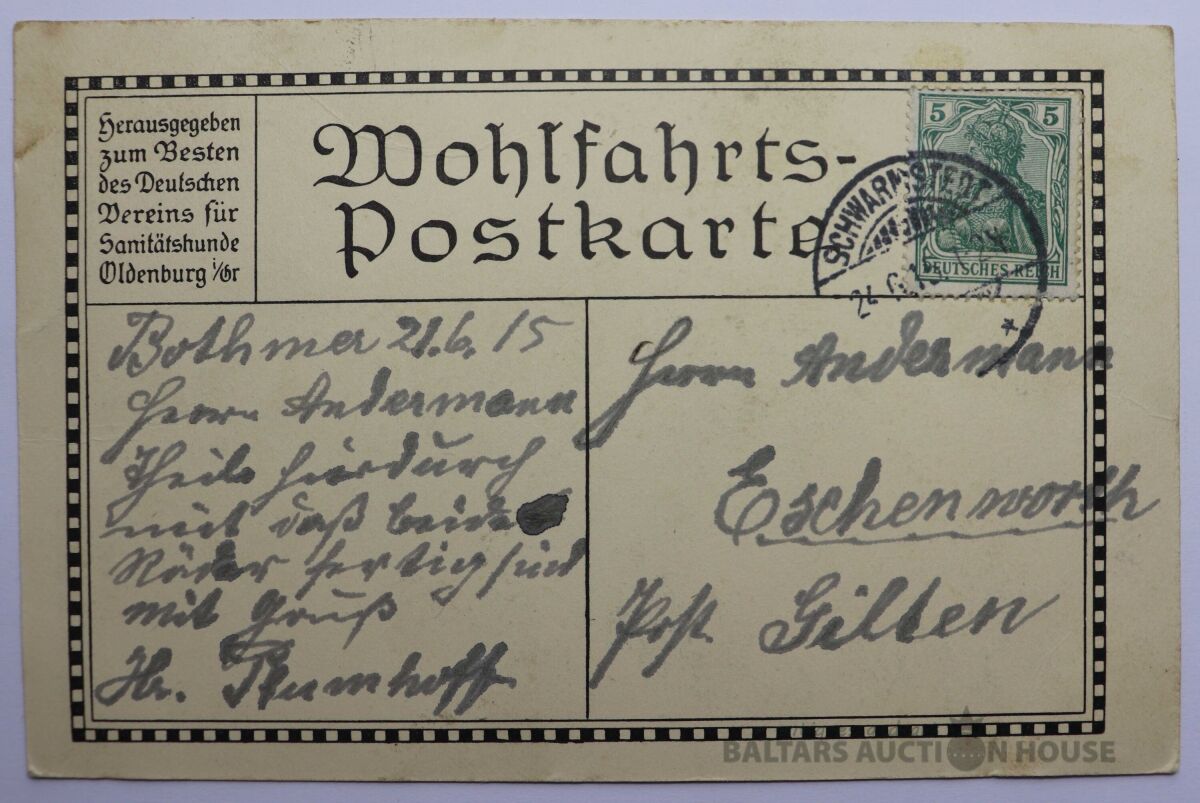 Herausgegeben
zum Besten
des Deutschen
Vereins für
Sanitätshunde
Oldenburg i/Gr
Wohlfahrts-
Postkarte
5 5
DEUTSCHES REICH
SCHWARMSTEDT
24.6.15.
Bothmer 21.6.15
Herrn Andermann
Theile hierdurch
mit daß beide
Räder fertig sind
mit Gruß
Hr.
Herrn Andermann
Eschenworth
Post Gilten
BALTARS AUCTION HOUSE